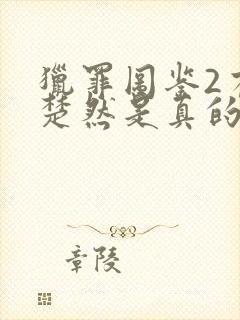 獵罪图鉴2方
楚然是真的
章陵